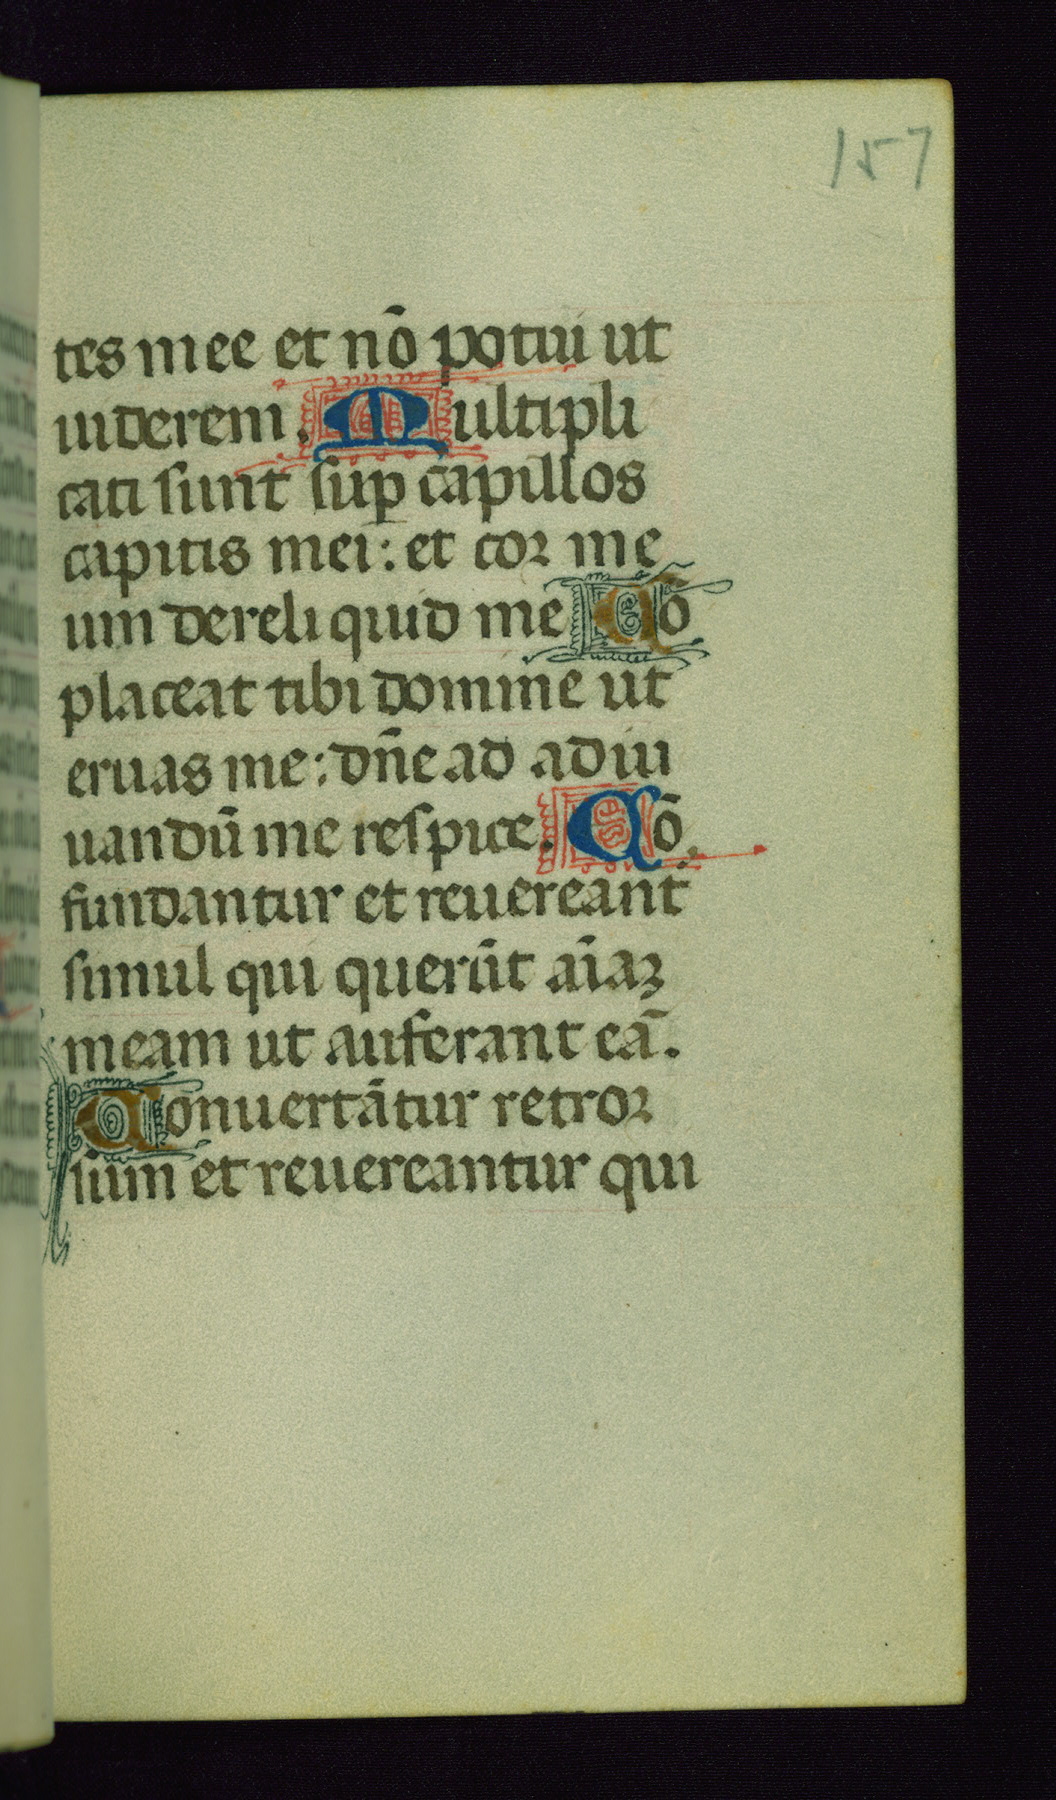 157
tes mee et nō potui ut
uiderem. Multipli
cati sunt sup̱ capillos
capitis mei: et coꝛ me
um dereliquid me Cō
placeat tibi domine ut
eruas me: dn̄e ad adiu
uandū me respice. Cō
fundantur et reuereant̄
simul qui querūt aīaꝫ
meam ut auferant eā.
Conuertātur retroꝛ
sum et reuereantur qui